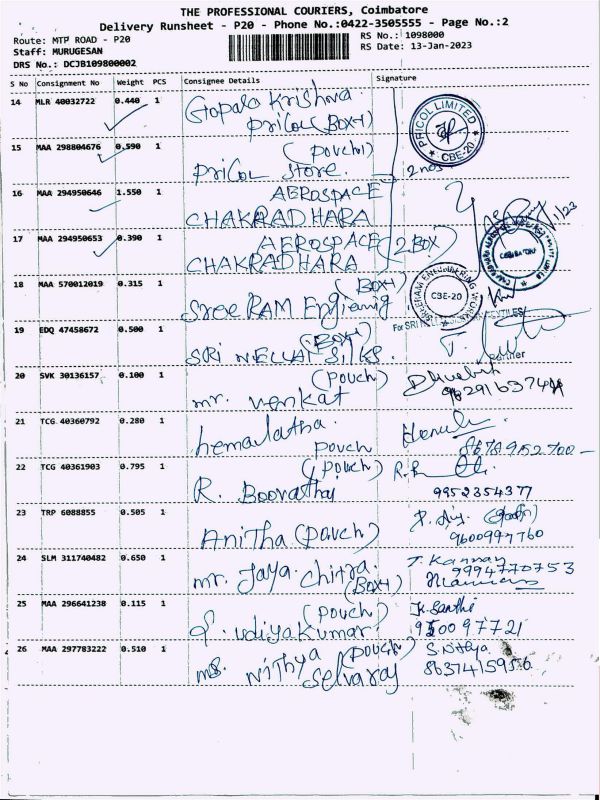 THE PROFESSIONAL COURIERS, Coimbatore
Delivery Runsheet - P20 - Phone No.:0422-3505555 - Page No.:2
Route: MTP ROAD - P20
RS No.: 1098000
Staff: MURUGESAN
RS Date: 13-Jan-2023
DRS No.: DCJB109800002
S No Consignment No Weight PCS Consignee Details Signature
14 MLR 40032722 0.440 1 Gopala Krishna
Pricol (BOX-1)
PRICOL LIMITED
CBE-20
15 MAA 298804676 0.590 1 (pouch 1)
Pricol Store.
2 nos
16 MAA 294950646 1.550 1 AEROSPACE
CHAKRADHARA
17 MAA 294950653 0.390 1 AEROSPACE (2 BOX)
CHAKRADHARA
18 MAA 570012019 0.315 1 (BOX-1)
Sree RAM Engienig
SREERAM ENGINEERING WORKS
CBE-20
19 EDQ 47458672 0.500 1 (BOX-1)
SRI NELLAI SILKS.
For SRI
20 SVK 30136157 0.100 1 (pouch)
mr. venkat
21 TCG 40360792 0.280 1 hemalatha.
pouch
8678952700
22 TCG 40361903 0.795 1 (pouch)
R. Boovathi
9952354377
23 TRP 6088855 0.505 1 Anitha (pouch)
9600997760
24 SLM 311740482 0.650 1 mr. Jaya. Chitra.
(BOX-1)
T. Kannan
9994770753
25 MAA 296641238 0.115 1 (pouch)
S. udiyakumar
K. Santhi
26 MAA 297783222 0.510 1 (pouch)
ms. Nithya
Selvaraj
S. Nithya
8637415956